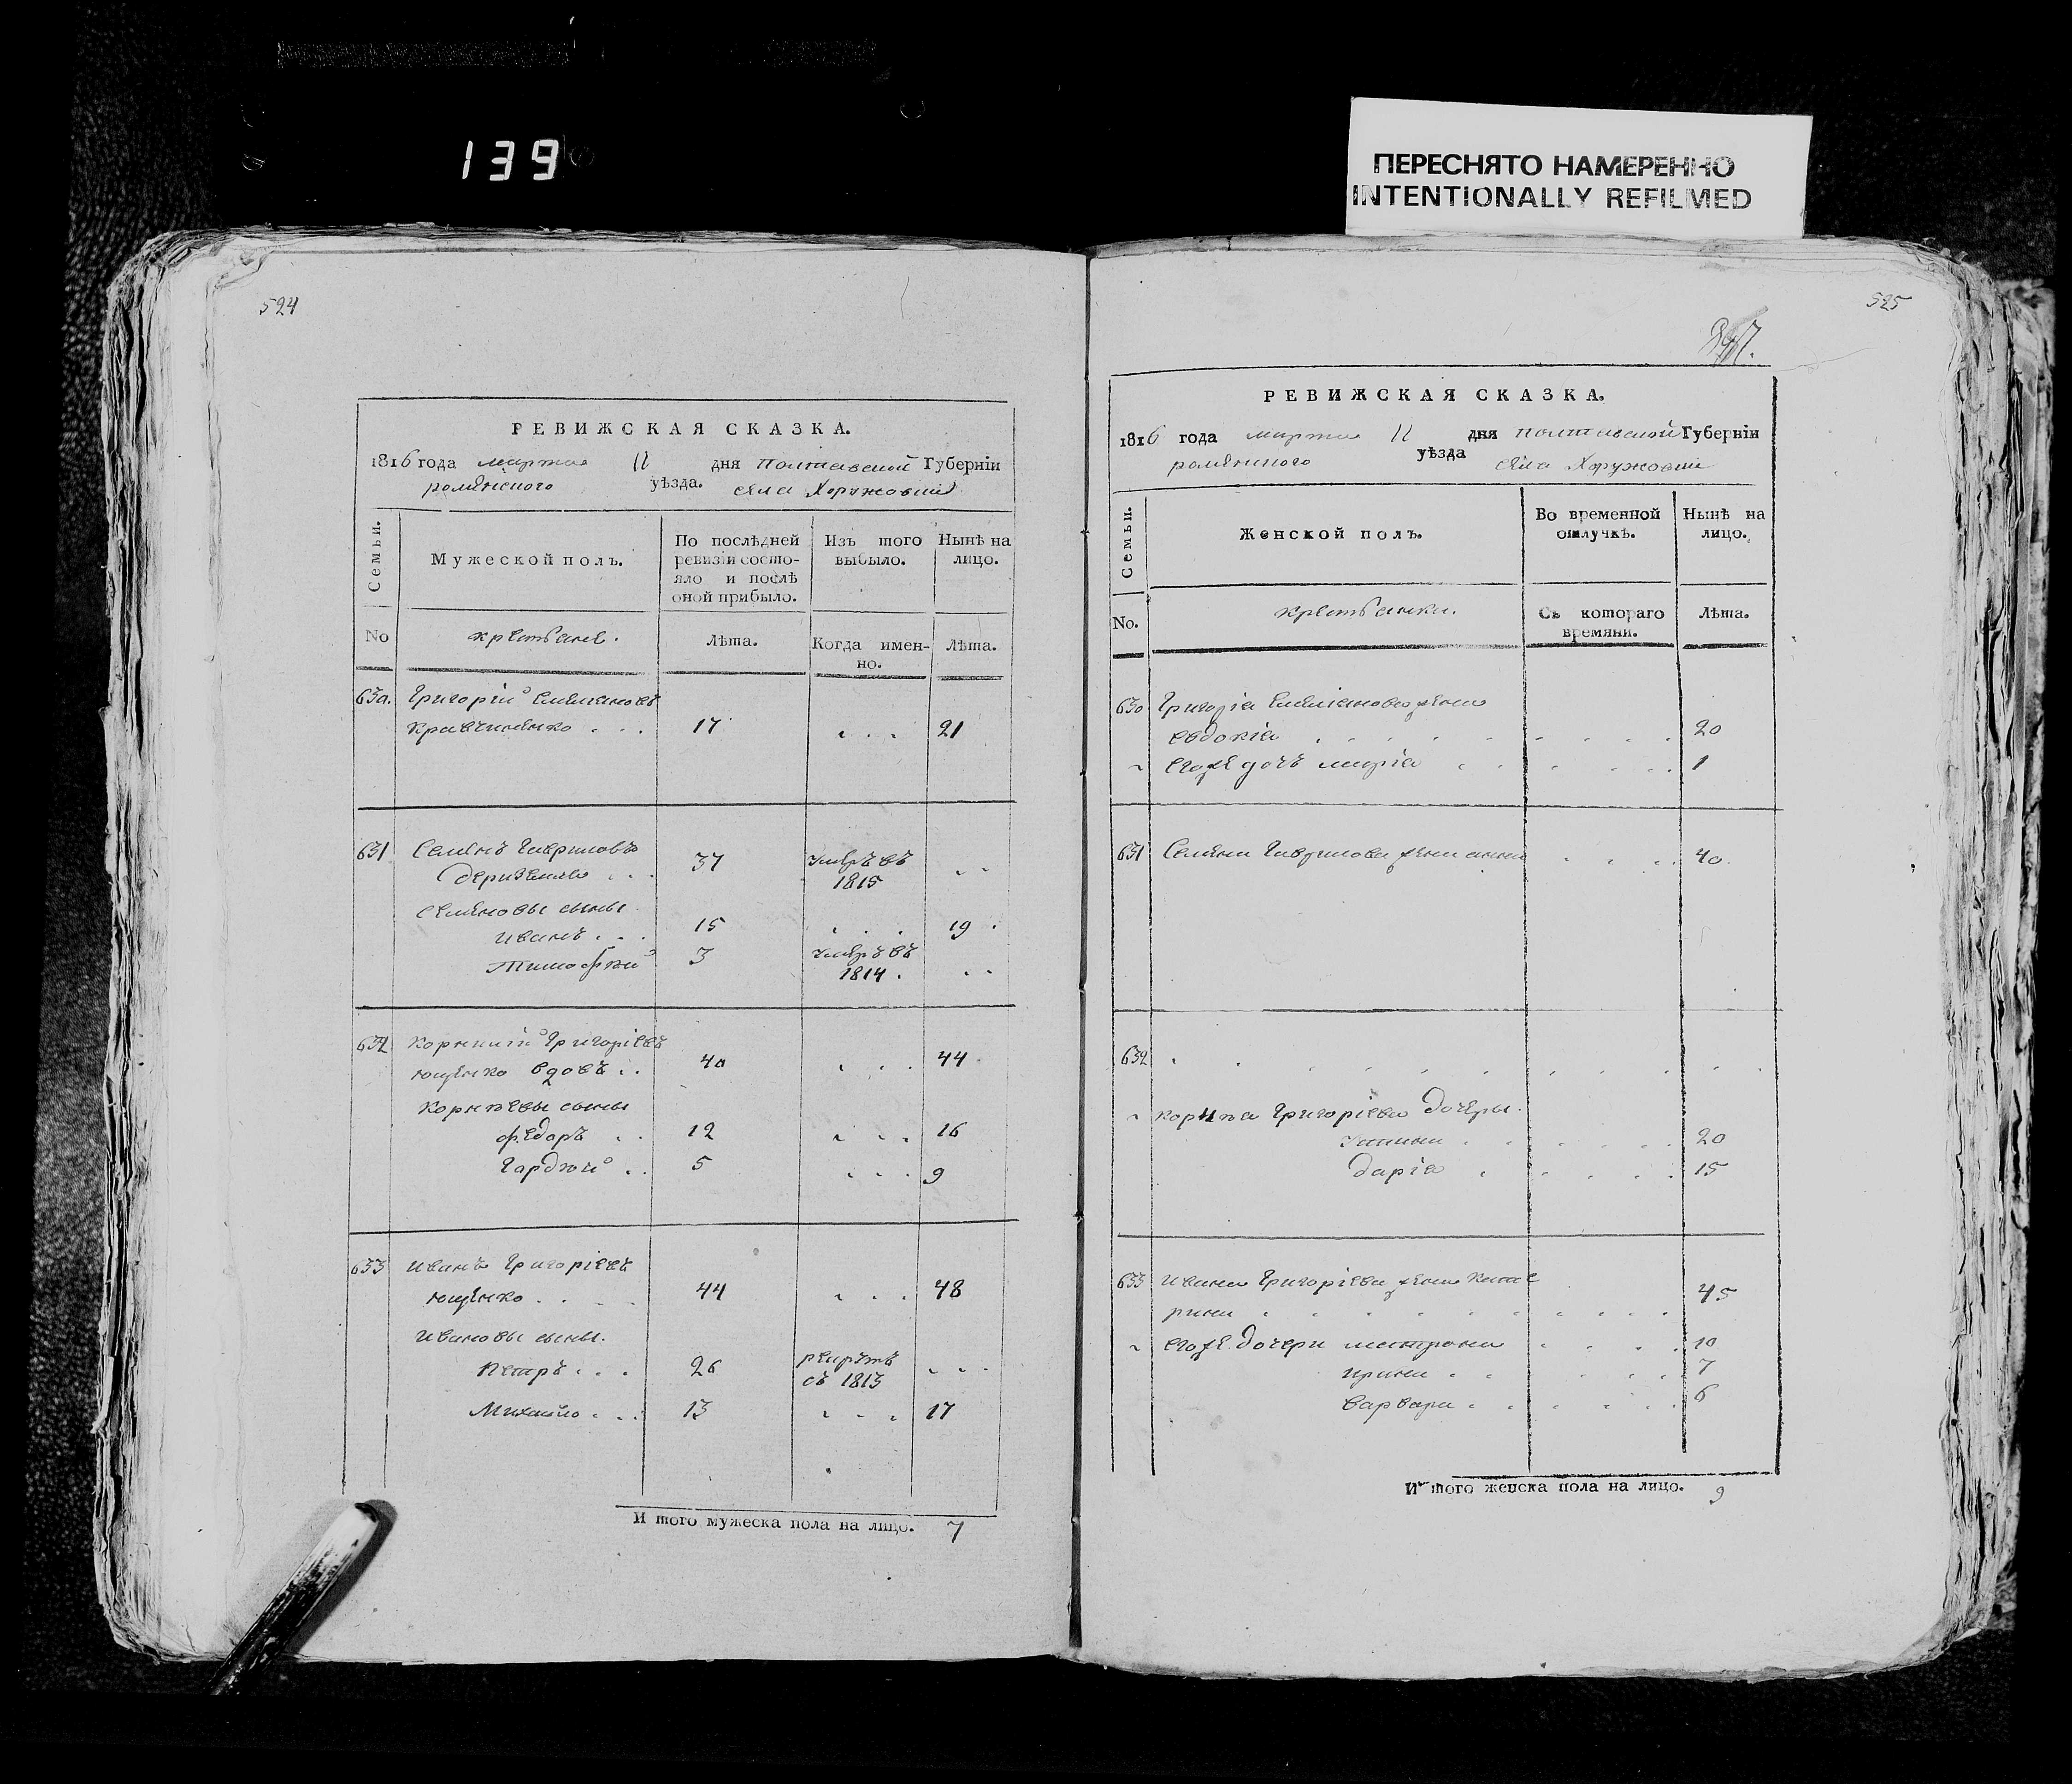 139
ПЕРЕСНЯТО НАМЕРЕННО
INTENTIONALLY REFILMED
524
РЕВИЖСКАЯ СКАЗКА.
1816 года марта 11 дня Полтавской Губерніи
роменского уѣзда. села Хоружовки
Семьи.
Мужеской полъ.
По послѣдней
ревизіи состо-
яло и послѣ
оной прибыло.
Изъ того
выбыло.
Нынѣ на
лицо.
No
крестьяне.
Лѣта.
Когда имен-
но.
Лѣта.
630. Григорій Емельяновъ
Кравченко . . . 17 . . . 21
631 Семенъ Гавриловъ
37 умеръ въ
1815 . .
Семеновы сыны
иванъ . . . 15 . . . 19
Тимофѣй 3 умеръ въ
1814 . . .
632 Корнилій Григоріевъ
ющенко вдовъ . . 40 . . . 44
Корнѣевы сыны
федоръ . . 12 . . . 16
Гардѣй . . 5 . . . 9
633 иванъ Григоріевъ
ющенко . . . . 44 . . . 48
ивановы сыны.
Петръ . . . 26 рекрутъ
съ 1813 . . .
Михайло . . . 13 . . . 17
И того мужеска пола на лицо. 7
525
РЕВИЖСКАЯ СКАЗКА.
1816 года марта 11 дня полтавской Губерніи
роменского уѣзда села Хоружовки
Семьи.
Женской полъ.
Во временной
отлучкѣ.
Нынѣ на
лицо.
No.
крестьянки.
Съ котораго
времяни.
Лѣта.
630 Григорія Емеліанова жена
евдокія . . . . . . . . . 20
" егоже дочь марія . . . . . . 1
631 Семена Гаврилова жена анна . . . . 40.
632 . . . . . . . . . . .
" Корнѣа Григоріева дочеры.
20
дарія . . . . . 15
633 ивана Григоріева жена Кате
рина . . . . . . . . . . 45
" егоже дочери матрона . . . . 10
ирина . . . . . 7
варвара . . . . . . 6
И того женска пола на лицо. 9